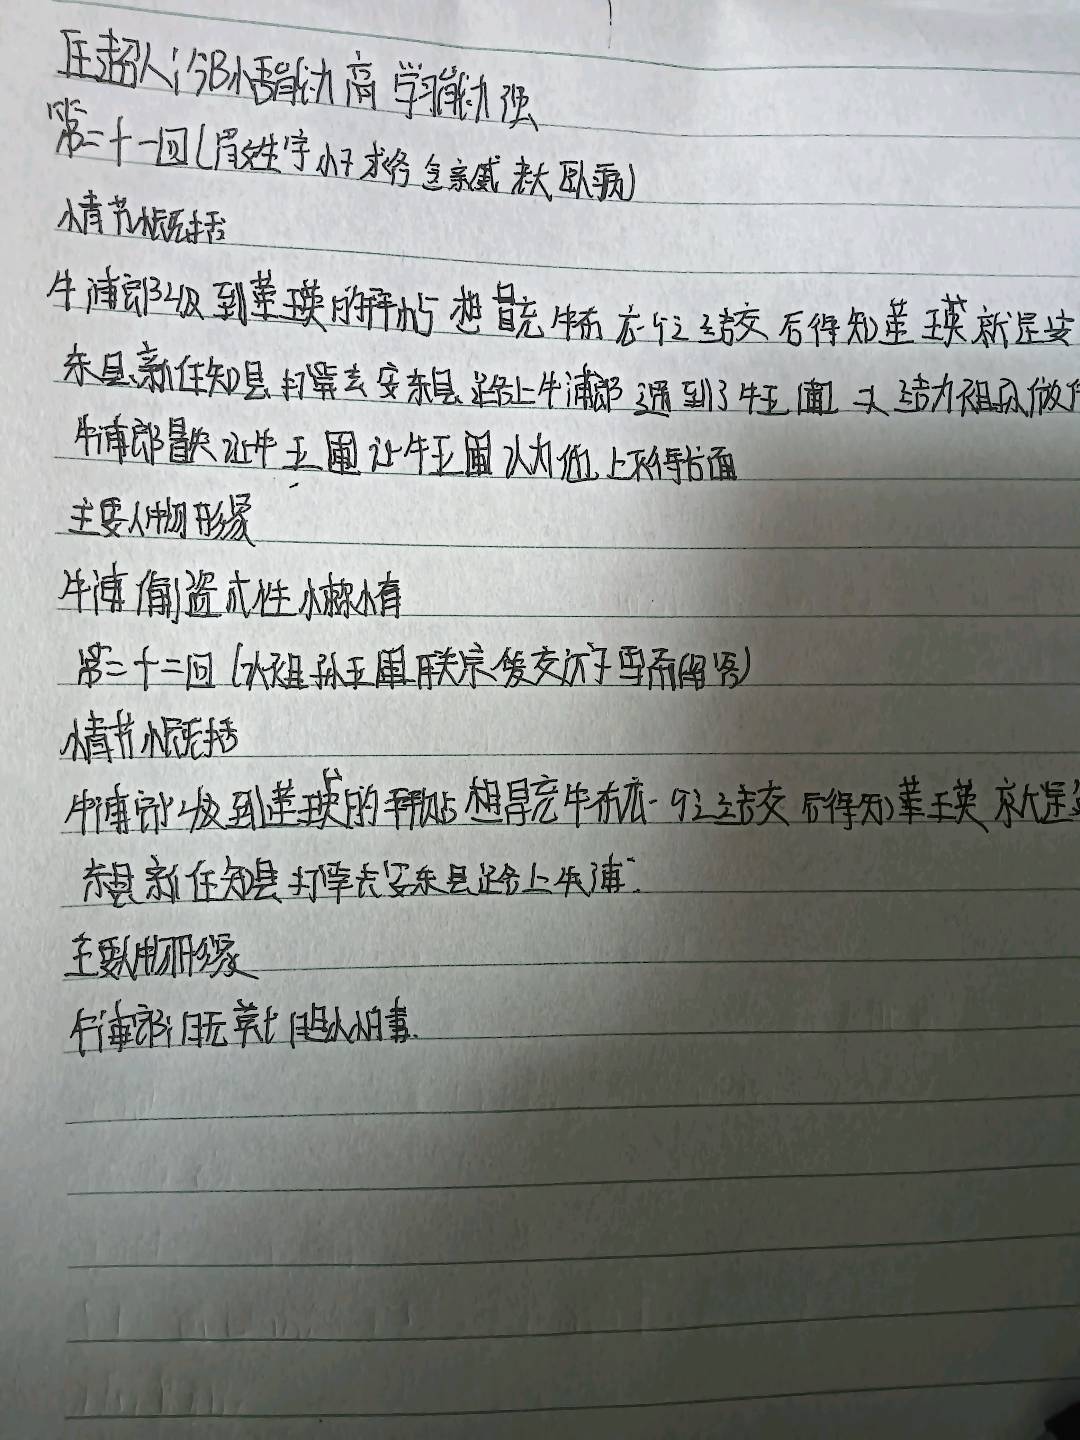 匡超人：领悟能力高 学习能力强
第二十一回（冒姓字小子求名 念亲戚老夫卧病）
情节概括
牛浦郎收到董瑛的拜帖 想冒充牛布衣与之结交 后得知董瑛就是安
东县新任知县 打算去安东县 途上牛浦郎遇到了牛玉圃 又结为祖孙
牛浦郎 让牛玉圃 让牛玉圃认为他上不得台面
主要人物形象
牛浦
第二十二回（认祖孙玉圃联宗 爱交游雪斋留客）
情节概括
牛浦郎收到董瑛的拜帖 想冒充牛布衣与之结交 后得知董瑛就是
东县新任知县 打算去安东县 途上牛浦
主要人物形象
牛浦郎：胆小怕事.